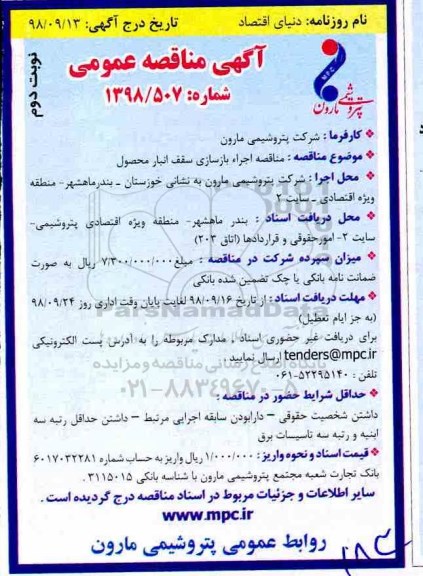 نام روزنامه: دنیای اقتصاد
تاریخ درج آگهی: ۹۸/۰۹/۱۳
نوبت دوم
آگهی مناقصه عمومی
شماره: ۱۳۹۸/۵۰۷
MPC
پتروشیمی مارون
کارفرما : شرکت پتروشیمی مارون
موضوع مناقصه : مناقصه اجراء بازسازی سقف انبار محصول
محل اجرا : شرکت پتروشیمی مارون به نشانی خوزستان ـ بندرماهشهر- منطقه
ویژه اقتصادی ـ سایت ۲
محل دریافت اسناد : بندر ماهشهر- منطقه ویژه اقتصادی پتروشیمی-
سایت ۲- امورحقوقی و قراردادها (اتاق ۲۰۳)
میزان سپرده شرکت در مناقصه : مبلغ ۷/۳۰۰/۰۰۰/۰۰۰ ریال به صورت
ضمانت نامه بانکی یا چک تضمین شده بانکی
مهلت دریافت اسناد : از تاریخ ۹۸/۰۹/۱۶ لغایت پایان وقت اداری روز ۹۸/۰۹/۲۴
(به جز ایام تعطیل)
برای دریافت غیر حضوری اسناد ، مدارک مربوطه را به آدرس پست الکترونیکی
tenders@mpc.ir ارسال نمایید .
تلفن : ۵۲۲۹۵۱۴۰-۰۶۱
حداقل شرایط حضور در مناقصه :
داشتن شخصیت حقوقی – دارابودن سابقه اجرایی مرتبط – داشتن حداقل رتبه سه
ابنیه و رتبه سه تاسیسات برق
قیمت اسناد و نحوه واریز : ۱/۰۰۰/۰۰۰ ریال واریز به حساب شماره ۶۰۱۷۰۳۲۲۸۱
بانک تجارت شعبه مجتمع پتروشیمی مارون با شناسه بانکی ۳۱۱۵۰۱۵ .
سایر اطلاعات و جزئیات مربوط در اسناد مناقصه درج گردیده است .
www.mpc.ir
روابط عمومی پتروشیمی مارون
ParsNamadData
پایگاه اطلاع رسانی مناقصه و مزایده
۰۲۱-۸۸۳۴۹۶۷۰-۵